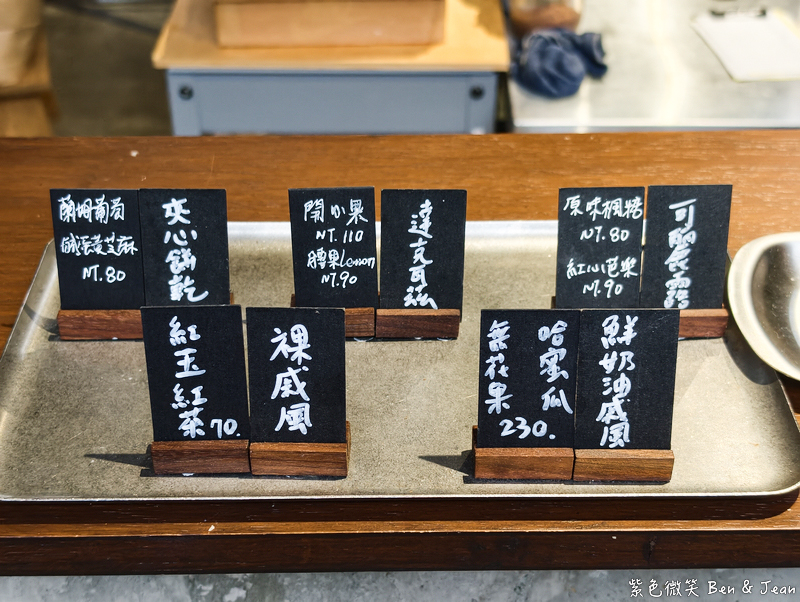 蘭姆葡萄
鹹蛋黃芝麻
NT.80
夾心餅乾
開心果
NT.110
腰果lemon
NT.90
達克瓦茲
原味楓糖
NT.80
紅心芭樂
NT.90
可麗露
紅玉紅茶70.
裸戚風
哈蜜瓜
無花果
230.
鮮奶油戚風
紫色微笑 Ben & Jean